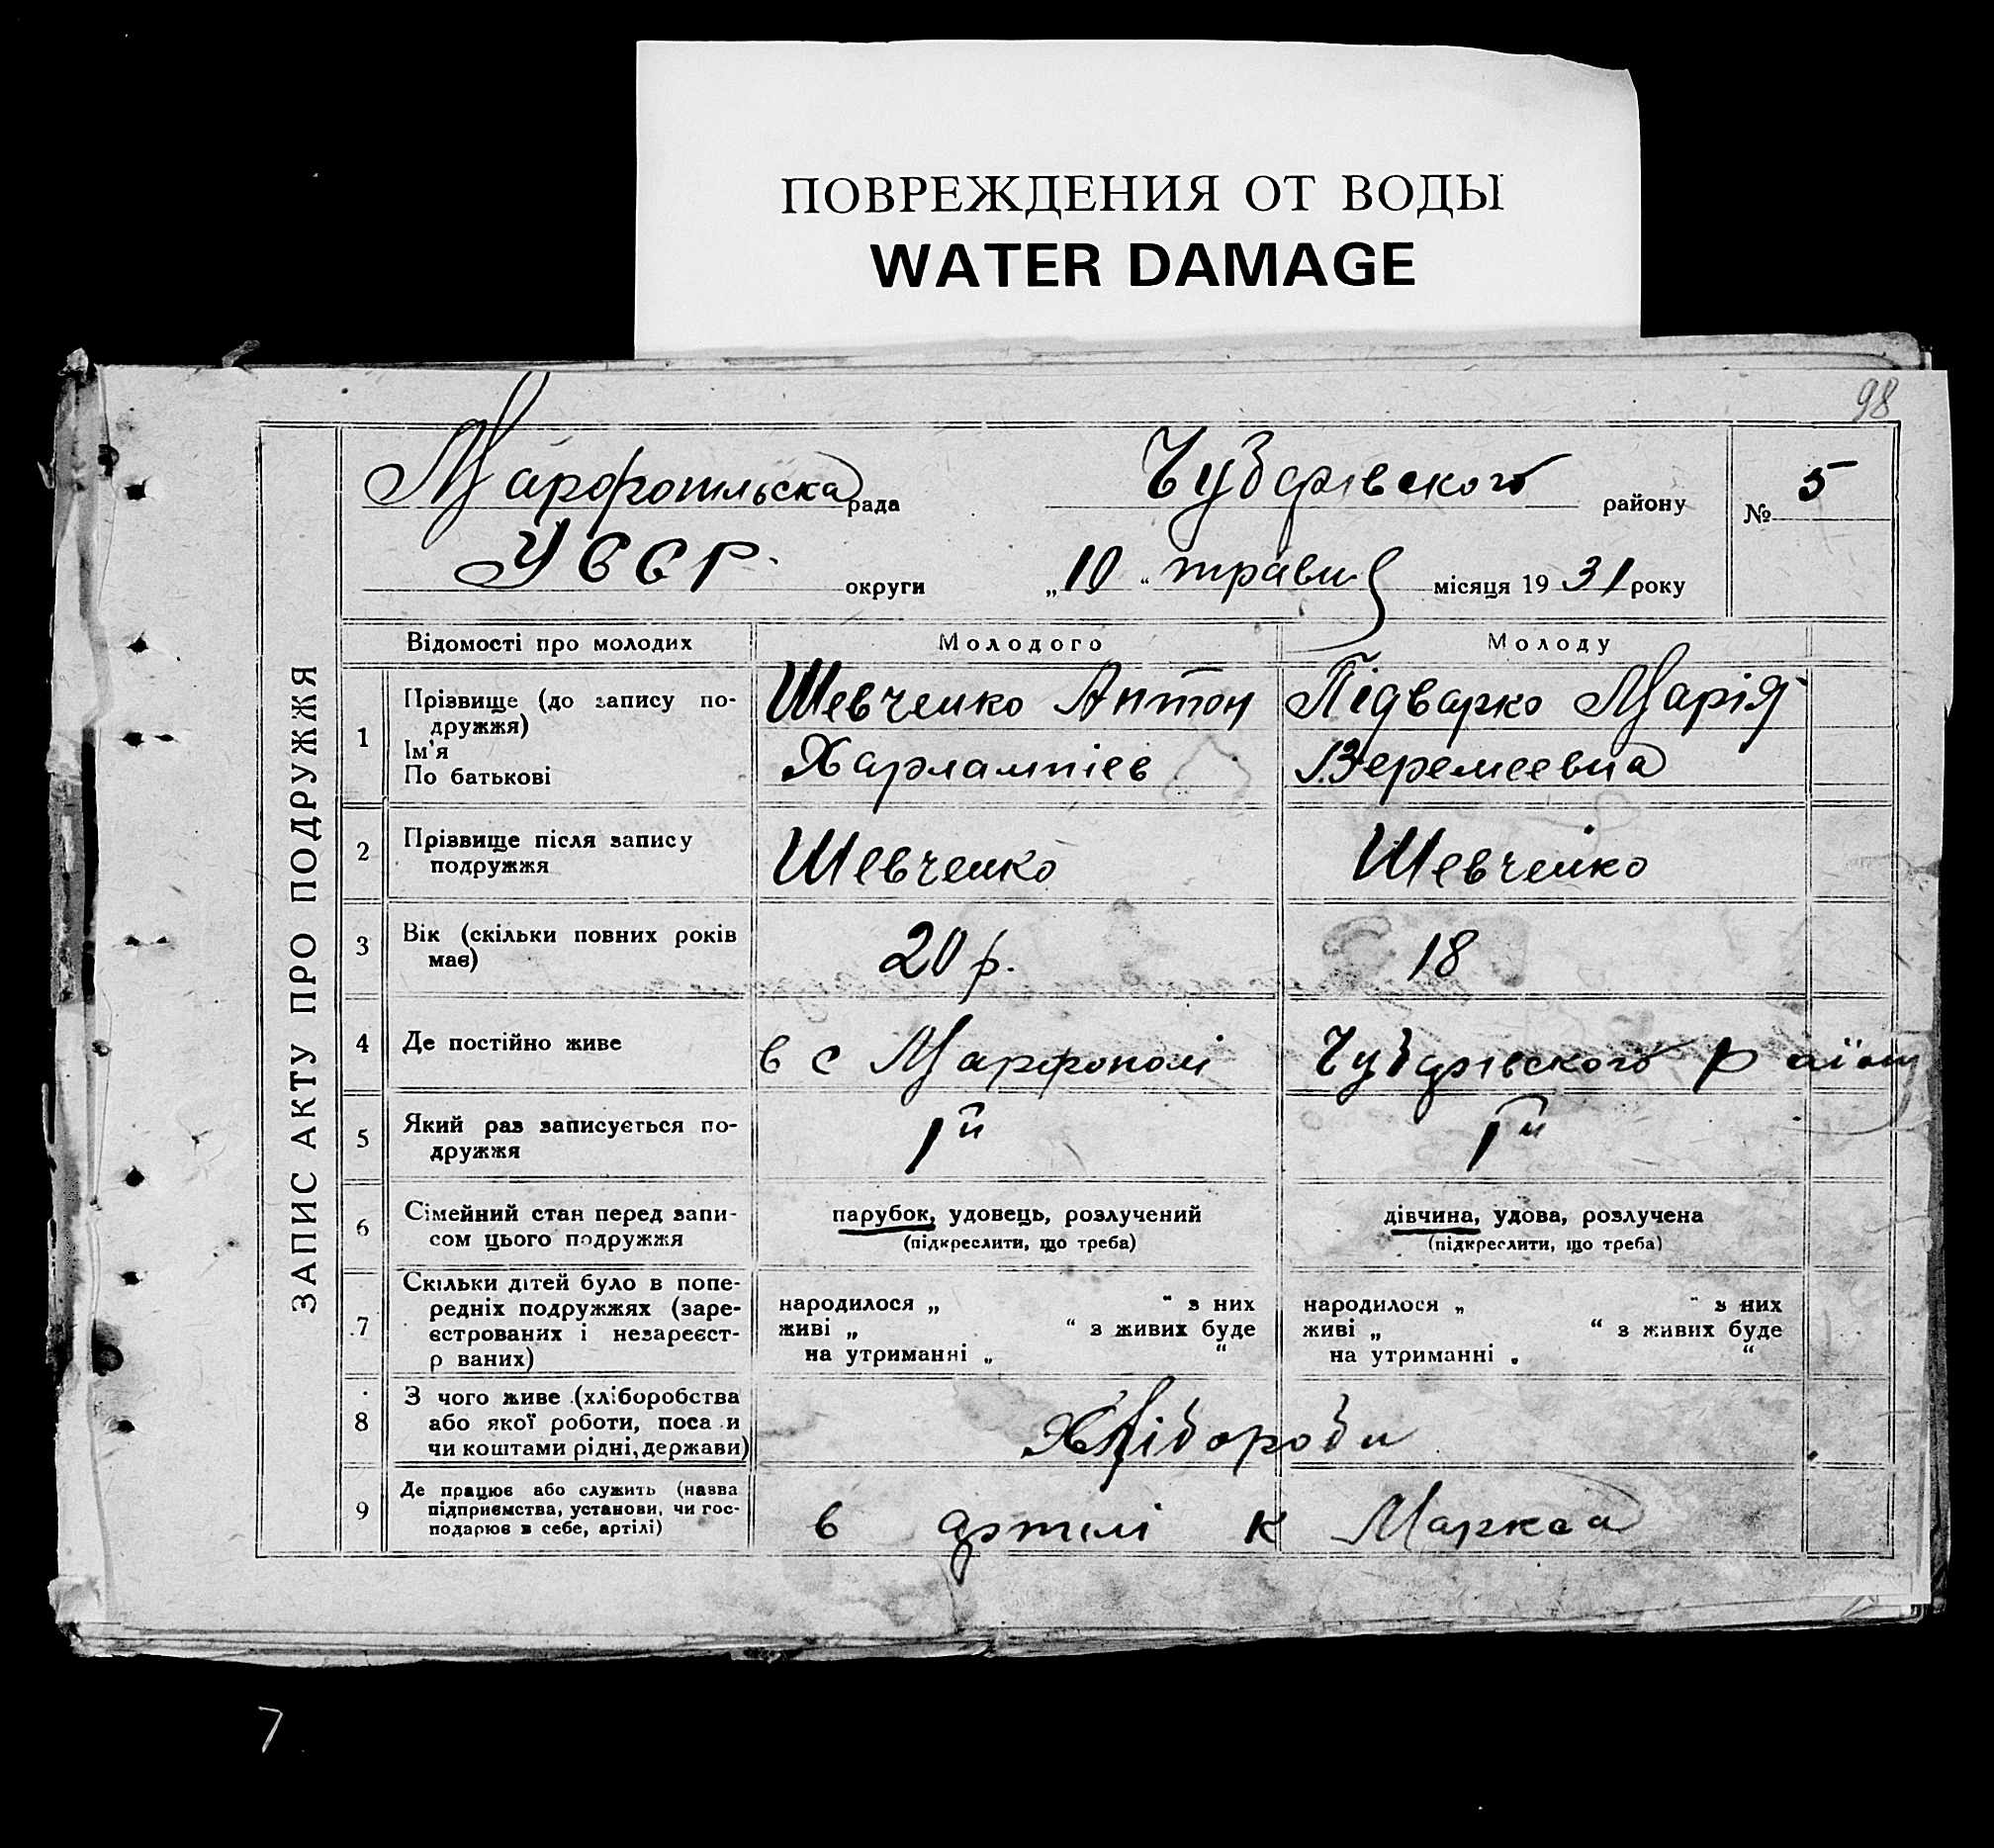 ПОВРЕЖДЕНИЯ ОТ ВОДЫ
WATER DAMAGE
98
Марфопільска рада Чубарівского району № 5
УССР округи „10“ травня місяця 1931 року
ЗАПИС АКТУ ПРО ПОДРУЖЖЯ
Відомості про молодих Молодого Молоду
1 Прізвище (до запису по-
дружжя)
Ім'я
По батькові
Шевченко Антон
Харлампіев
Підварко Марія
Веремеевна
2 Прізвище після запису
подружжя
Шевченко Шевченко
3 Вік (скільки повних років
має)
20 р. 18
4 Де постійно живе в с Марфополі Чубарівского район
5 Який раз записується по-
дружжя
1й 1й
6 Сімейний стан перед запи-
сом цього подружжя
парубок, удовець, розлучений
(підкреслити, що треба)
дівчина, удова, розлучена
(підкреслити, що треба)
7 Скільки дітей було в попе-
редніх подружжях (заре-
єстрованих і незареєст-
р ваних)
народилося „ “ з них
живі „ “ з живих буде
на утриманні „ “
народилося „ “ з них
живі „ “ з живих буде
на утриманні „ “
8 З чого живе (хліборобства
або якої роботи, поса и
чи коштами рідні, держави)
Хлібороби
9 Де працює або служить (назва
підприємства, установи, чи гос-
подарює в себе, артілі)
в артілі К Маркса
7